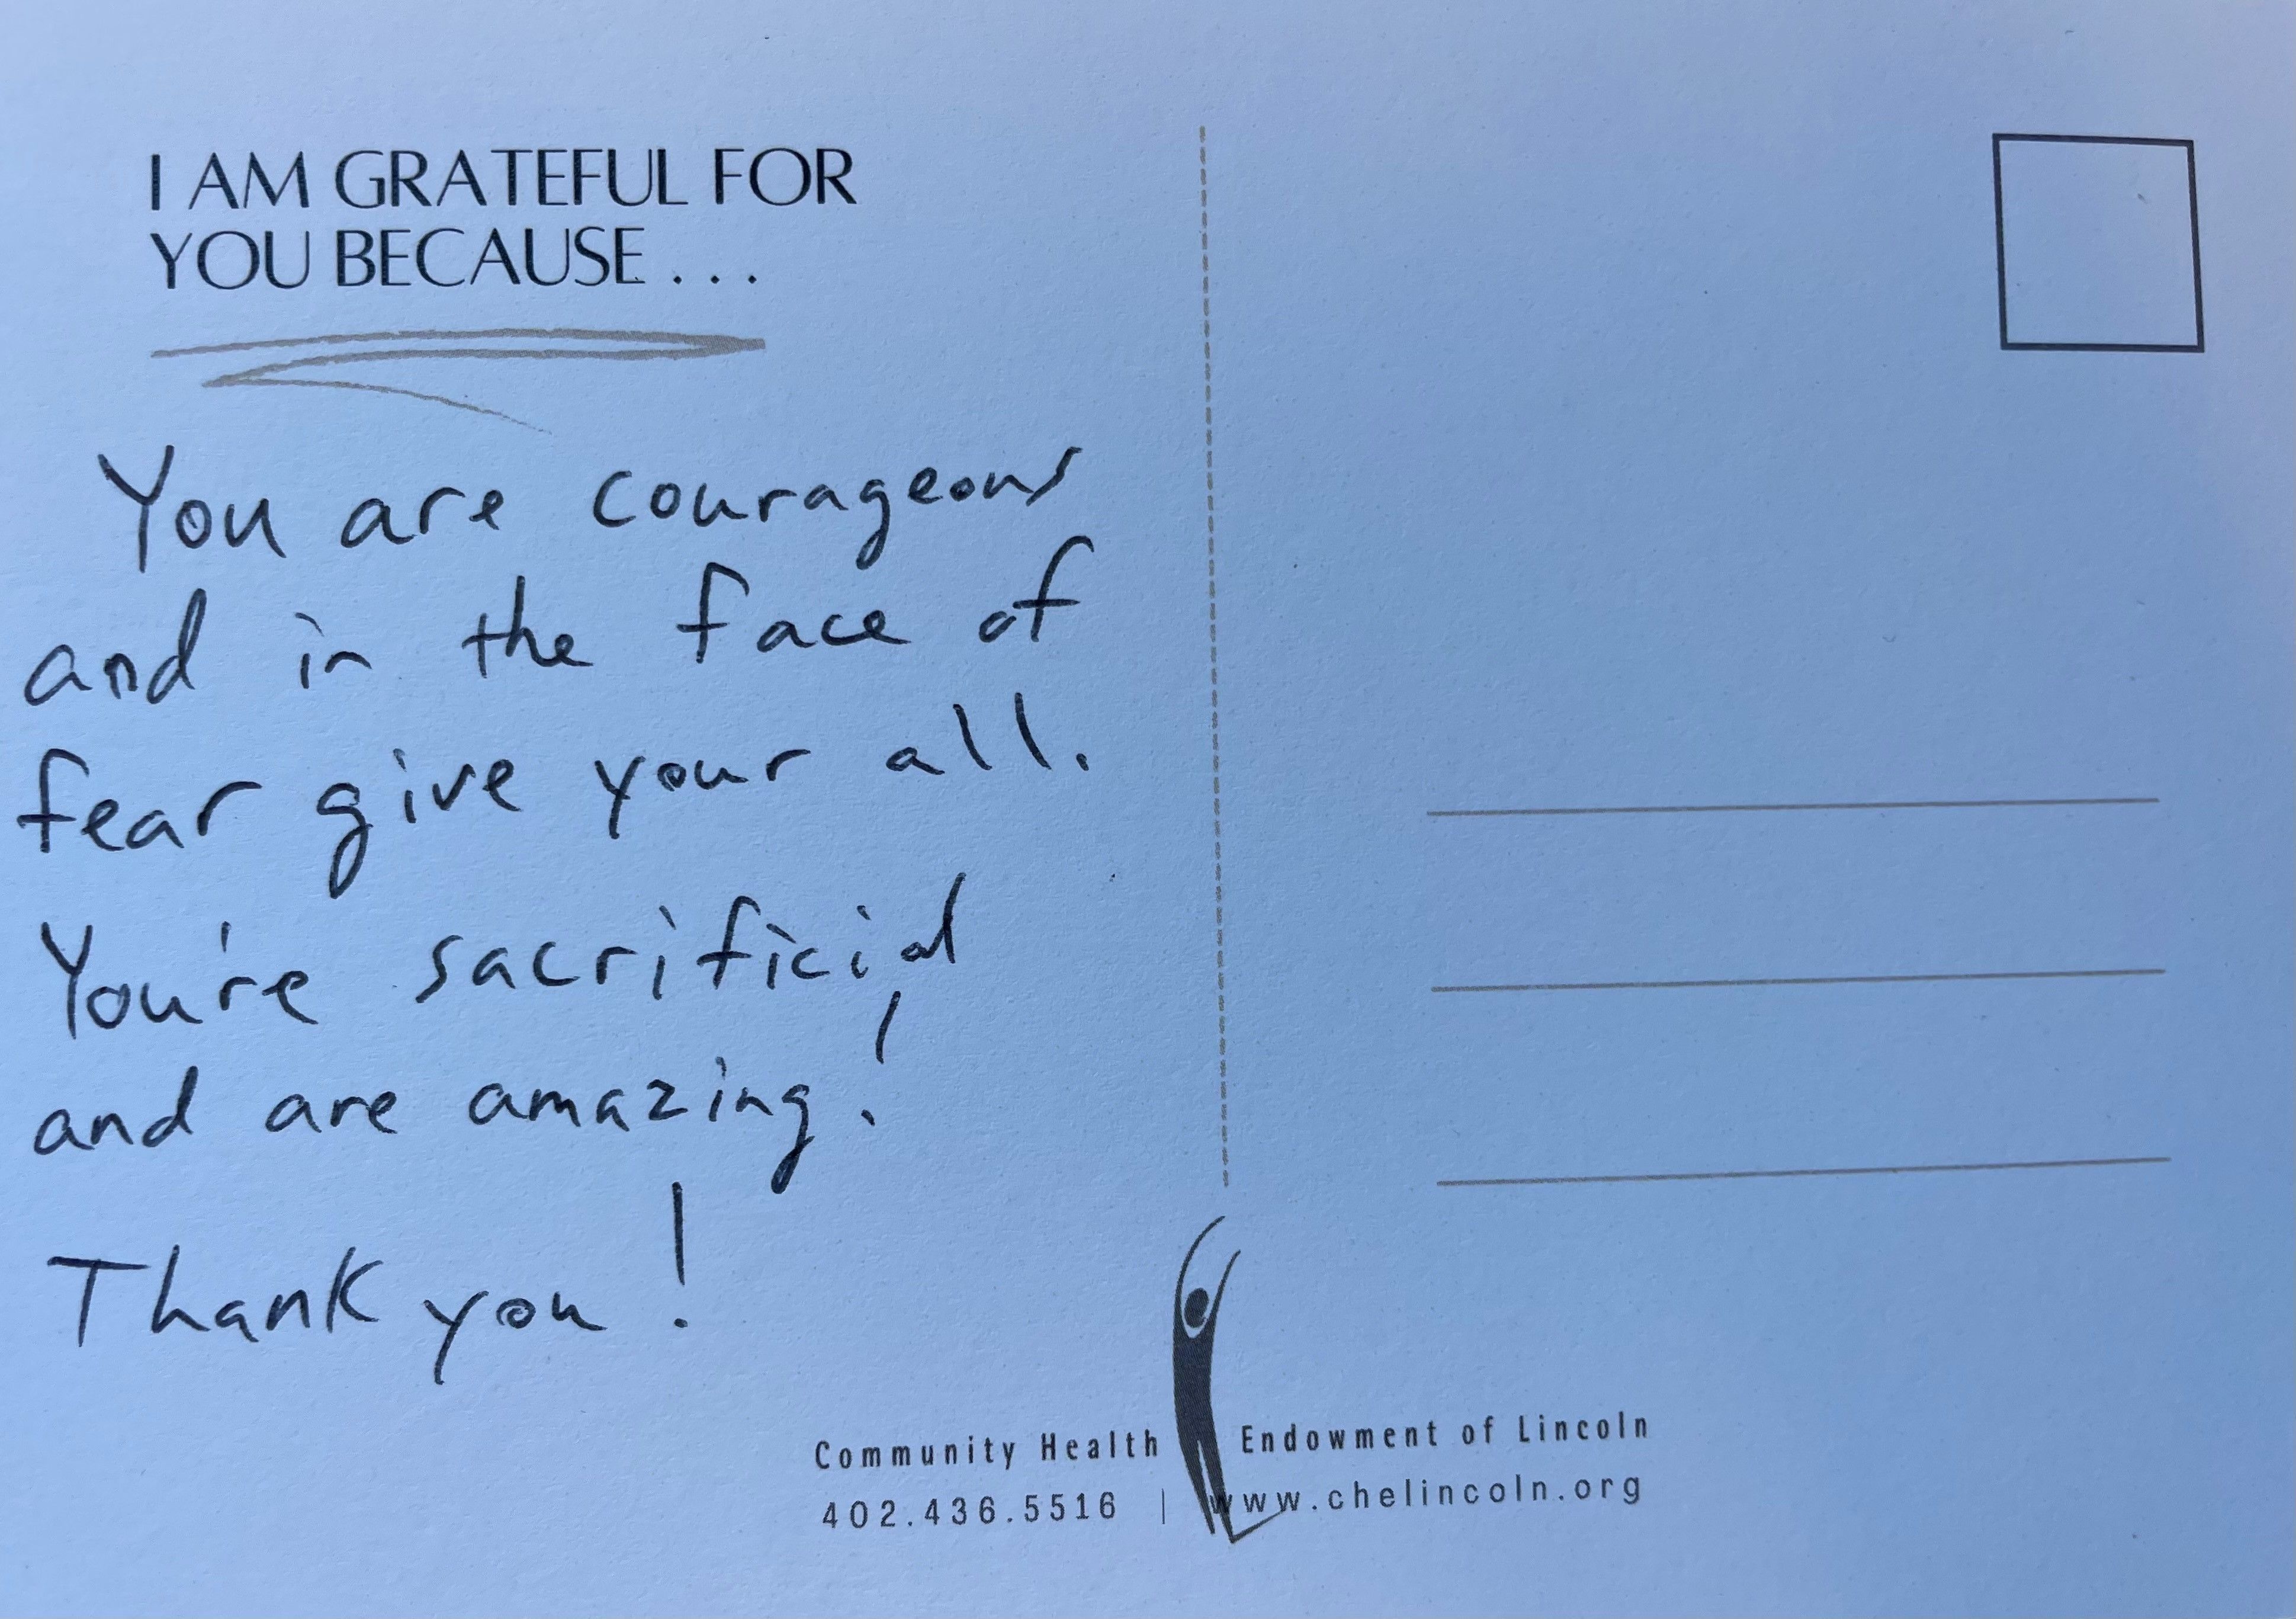 I AM GRATEFUL FOR
YOU BECAUSE . . .
You are courageous
and in the face of
fear give your all.
You're sacrificial
and are amazing!
Thank you!
Community Health Endowment of Lincoln
402.436.5516 | www.chelincoln.org